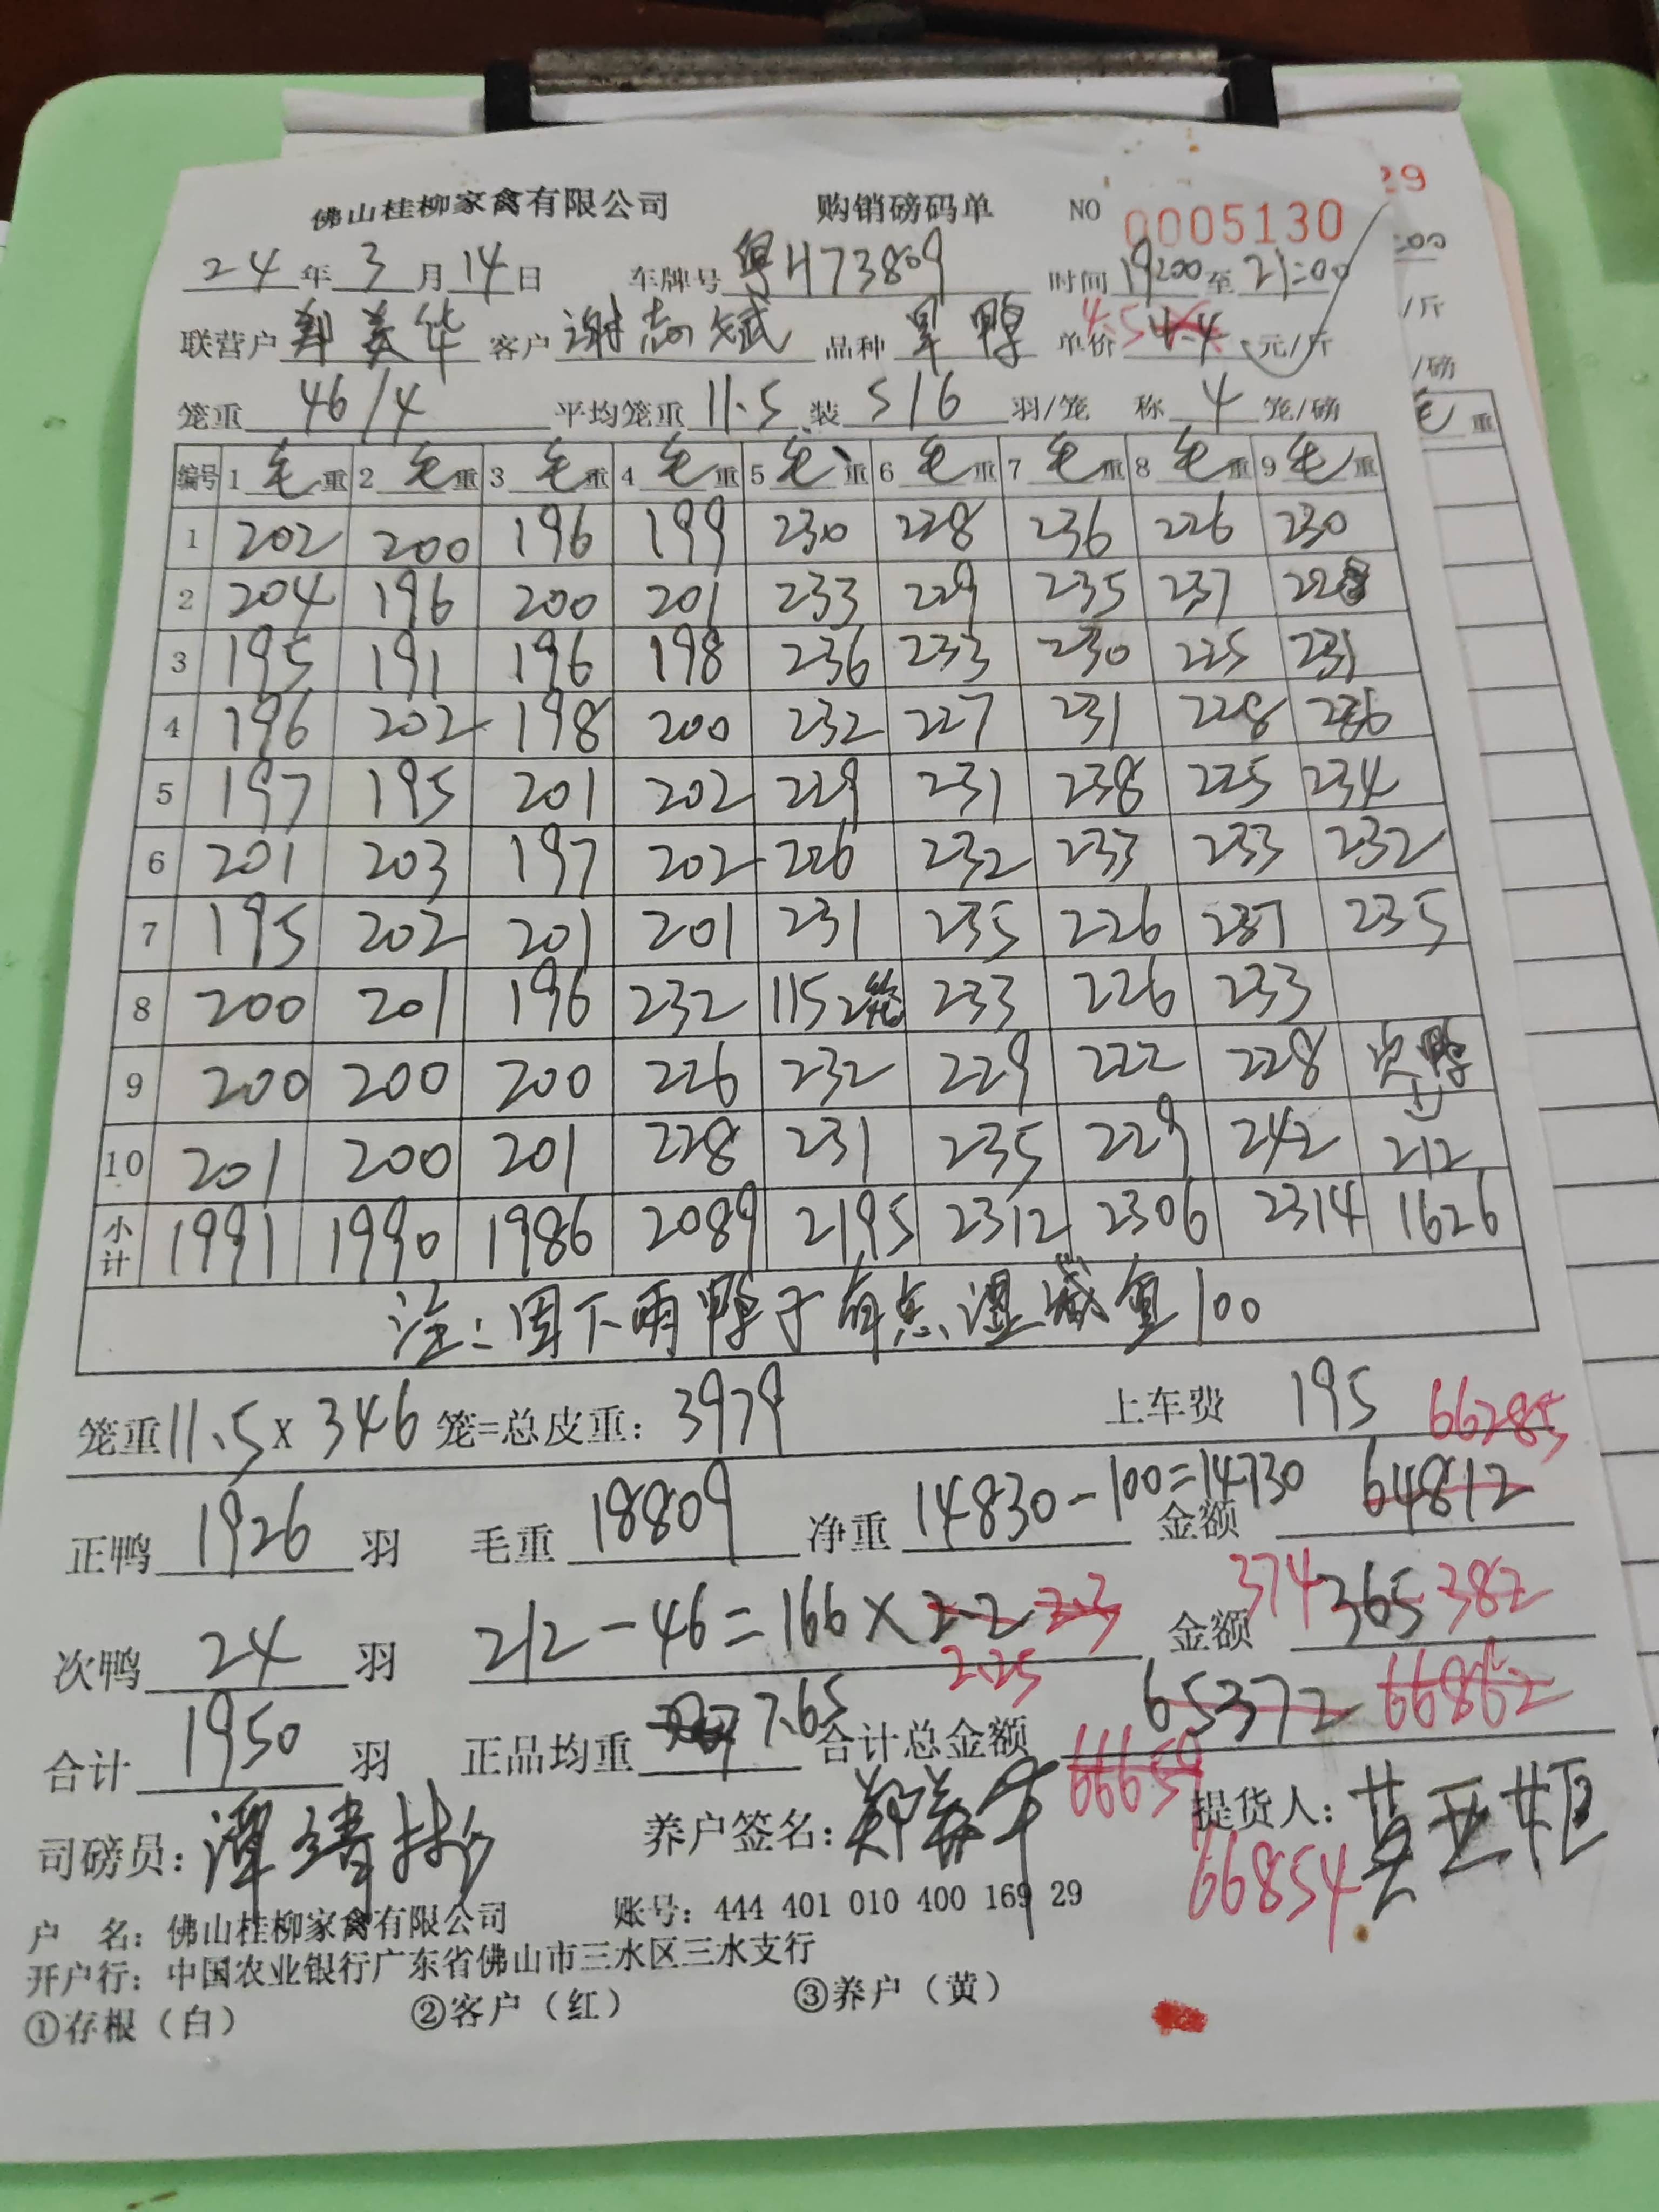 佛山桂柳家禽有限公司 购销磅码单 NO 0005130
24年3月14日 车牌号 粤H73809 时间 19:00 至 21:00
联营户 郑美华 客户 谢志斌 品种 旱鸭 单价 4.5 4.4 元/斤
笼重 46/4 平均笼重 11.5 装 5/6 羽/笼 称 4 笼/磅
编号 1 毛重 2 毛重 3 毛重 4 毛重 5 毛重 6 毛重 7 毛重 8 毛重 9 毛重
1 202 200 196 199 230 228 236 226 230
2 204 196 200 201 233 229 235 237 228
3 195 191 196 198 236 233 230 225 231
4 196 202 198 200 232 227 231 228 236
5 197 195 201 202 229 231 238 225 234
6 201 203 197 202 226 232 233 233 232
7 195 202 201 201 231 235 226 237 235
8 200 201 196 232 115 2笼 233 226 233
9 200 200 200 226 232 229 222 228 次鸭
10 201 200 201 228 231 235 229 242 212
小计 1991 1990 1986 2089 2195 2312 2306 2314 1626
注：因下雨鸭子有点湿减重100
笼重 11.5 x 346 笼=总皮重： 3979 上车费 195
66285
正鸭 1926 羽 毛重 18809 净重 14830-100=14730 金额 64812
次鸭 24 羽 212-46=166×2.2 2.3 金额 374 365 382
2.25
合计 1950 羽 正品均重 7.65 合计总金额 65372 66862
66659
司磅员： 谭靖彬 养户签名： 郑美华 提货人： 黄亚姖
66854
户 名：佛山桂柳家禽有限公司 账号：444 401 010 400 169 29
开户行：中国农业银行广东省佛山市三水区三水支行
①存根（白） ②客户（红） ③养户（黄）
29
:00
/斤
/磅
毛重